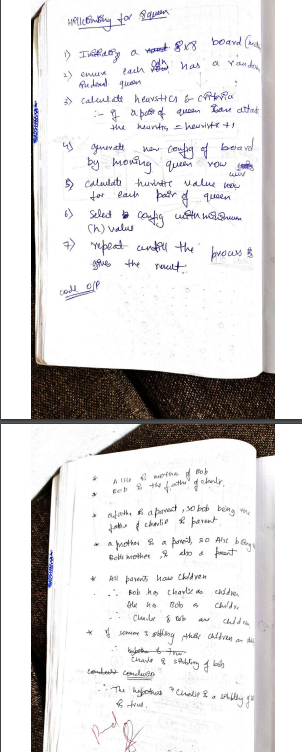 Hillclimbing for 8 queen
1) Initialize a 8x8 board
2) ensure each has a random
placed queen
3) calculate heuristics & criteria
:- if a pair of queen are attack
the heuristic = heuristic + 1
4) generate new config of board
by moving queen row
wise
5) calculate heuristic value now
for each pair of queen
6) Select config with minimum
(h) value
7) repeat until the process
gives the result.
code O/P
* Alice is mother of Bob
* Bob is the father of charlie.
* a father is a parent, so bob being the
father of charlie is parent
* a mother is a parent, so Alice being
Bobs mother, is also a parent
* All parents have children
∴ Bob has Charlie as children
Alice has Bob as children
∴ Charlie & Bob are children
* if someone is sibling, their children
Charlie is sibling of bob
conclusion
∴ The hypothesis "Charlie is a sibling of
is true.